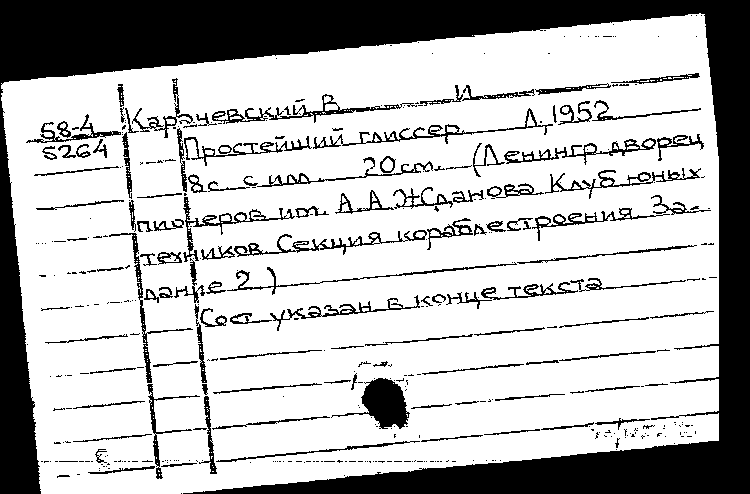 58-4 Карачевский, В И
5264 Простейший глиссер Л., 1952
8с. с илл. 20см. (Ленингр. дворец
пионеров им. А. А. Жданова Клуб юных
техников. Секция кораблестроения. За-
дание 2)
Сост указан в конце текста